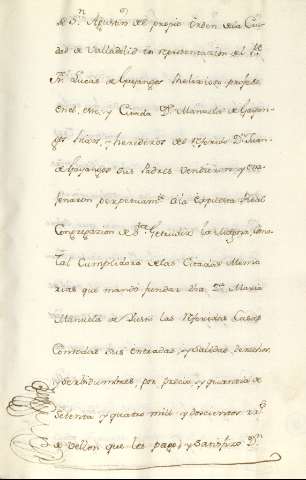 de Sn. Agustin del propio orden de la Ciu-
dad de Valladolid en representazion del Pe.
Fr. Lucas de Guyangos Relixioso profeso
en el, etc. y Citada Da. Manuela de Gayan-
gos hixos, y herederos del referido Dn. Juan
de Guyangos sus Padres vendieron y ena-
genaron perpetuamte. a la expresada Real
Congregazion de Sta. Getrudis la Magna, como
tal Cumplidora de las Citadas Memo
rias que mando fundar dha. Da. Maria
Manuela de las referidas Casas
Con todas sus entradas, y salidas, derechos,
y servidumbres, por precio, y quantia de
setenta y quatro mil y doscientos rs.
de vellon que les pago, y satisfizo Dn.